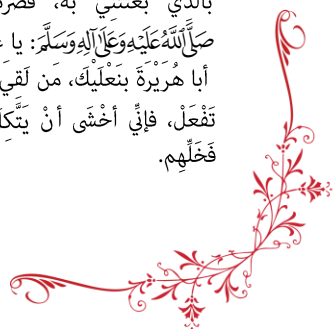 بالذي بعثني به، فضر
صَلَّى اللَّهُ عَلَيْهِ وَعَلَى آلِهِ وَسَلَّمَ: يا
أبا هُرَيْرَةَ بنَعْلَيْكَ، مَن لَقِيَ
تَفْعَلْ، فإنِّي أخْشَى أنْ يَتَّكِلَ
فَخَلِّهِم.